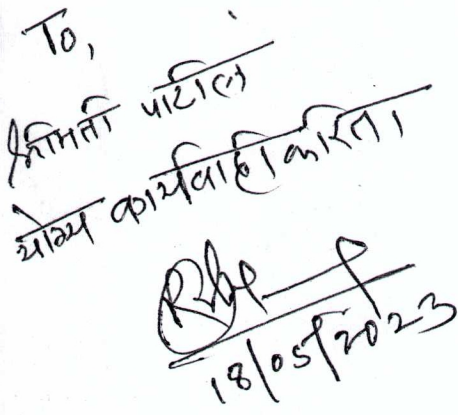 To,
श्रीमती पाटील
योग्य कार्यवाही करिता।
18/05/2023